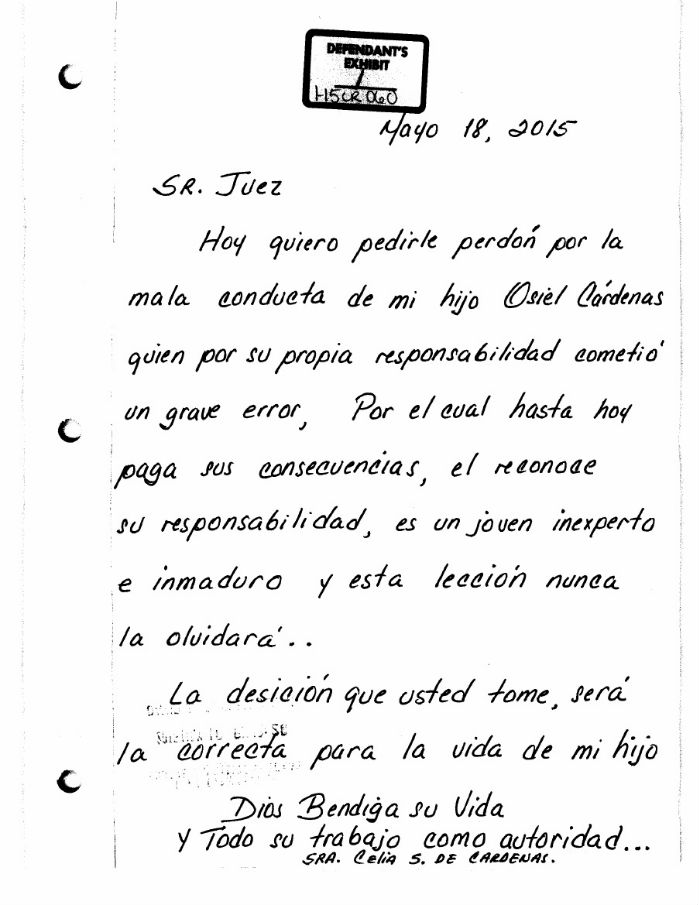 DEFENDANT'S
EXHIBIT
1
H15CR060
Mayo 18, 2015
SR. Juez
Hoy quiero pedirle perdoń por la
mala conducta de mi hijo Osiel Cárdenas
quien por su propia responsabilidad cometió
un grave error, Por el cual hasta hoy
paga sus consecuencias, el reconoce
su responsabilidad, es un joven inexperto
e inmaduro y esta lección nunca
la olvidará..
La desición que usted tome, será
la correcta para la vida de mi hijo
Dios Bendiga su Vida
y Todo su trabajo como autoridad...
SRA. Celia S. DE CARDENAS.